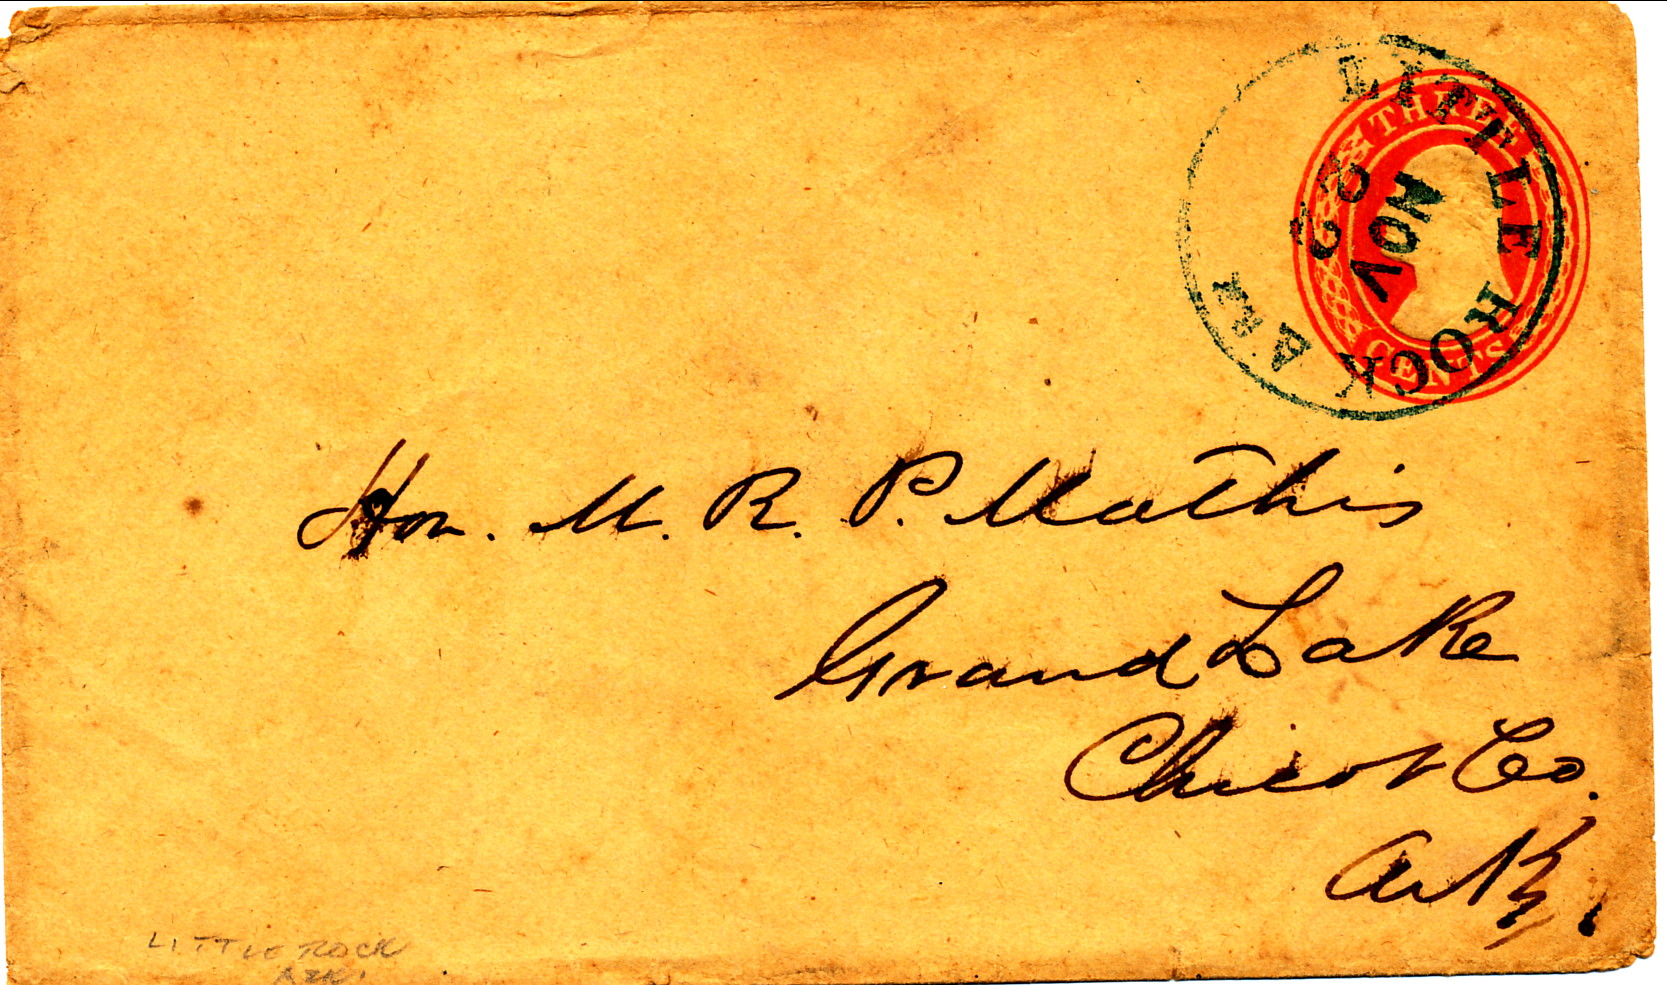 LITTLE ROCK ARK
NOV
28
THREE
CENTS
Hon. M. R. P. Mathis
Grand Lake
Chicot Co.
Ark.
LITTLE ROCK
ARK.